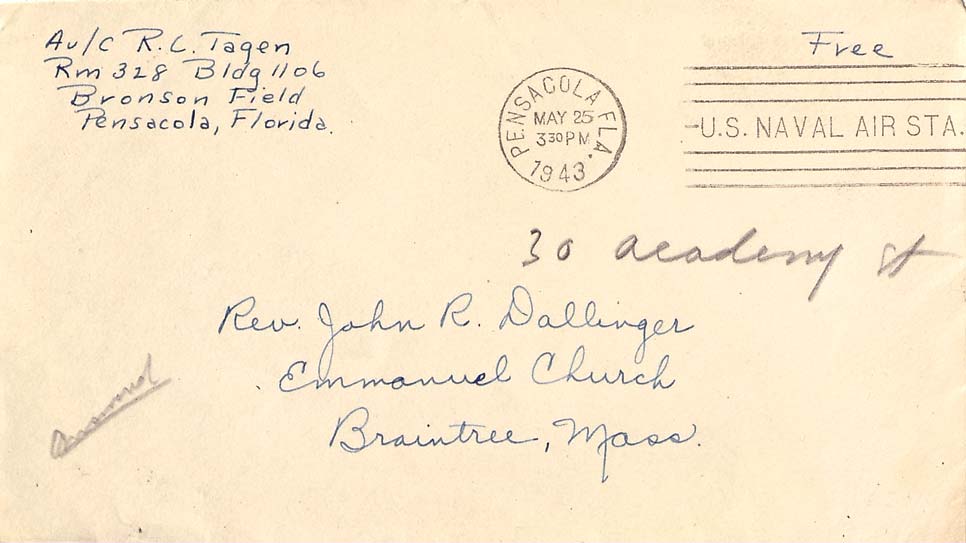 Av/C R.C. Tagen
Rm 328 Bldg 1106
Bronson Field
Pensacola, Florida.
Free
PENSACOLA FLA.
MAY 25
330 PM
1943
U.S. NAVAL AIR STA.
30 academy st
Rev. John R. Dallinger
Emmanuel Church
Braintree, Mass.